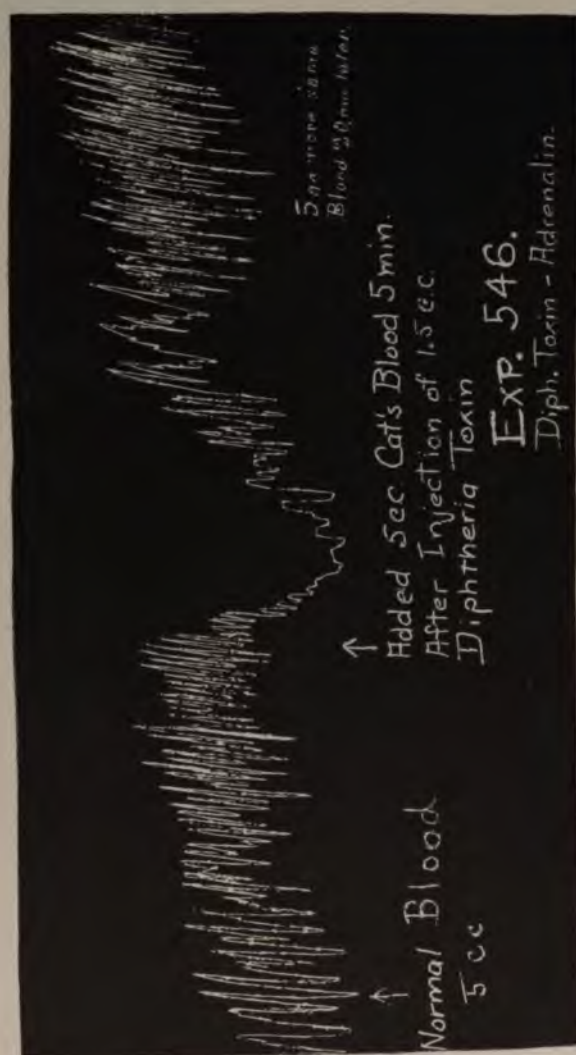 Normal Blood
5 cc
Added 5cc Cat's Blood 5 min.
After Injection of 1.5 c.c.
Diphtheria Toxin
more same
Blood later.
EXP. 546.
Diph. Toxin - Adrenalin.